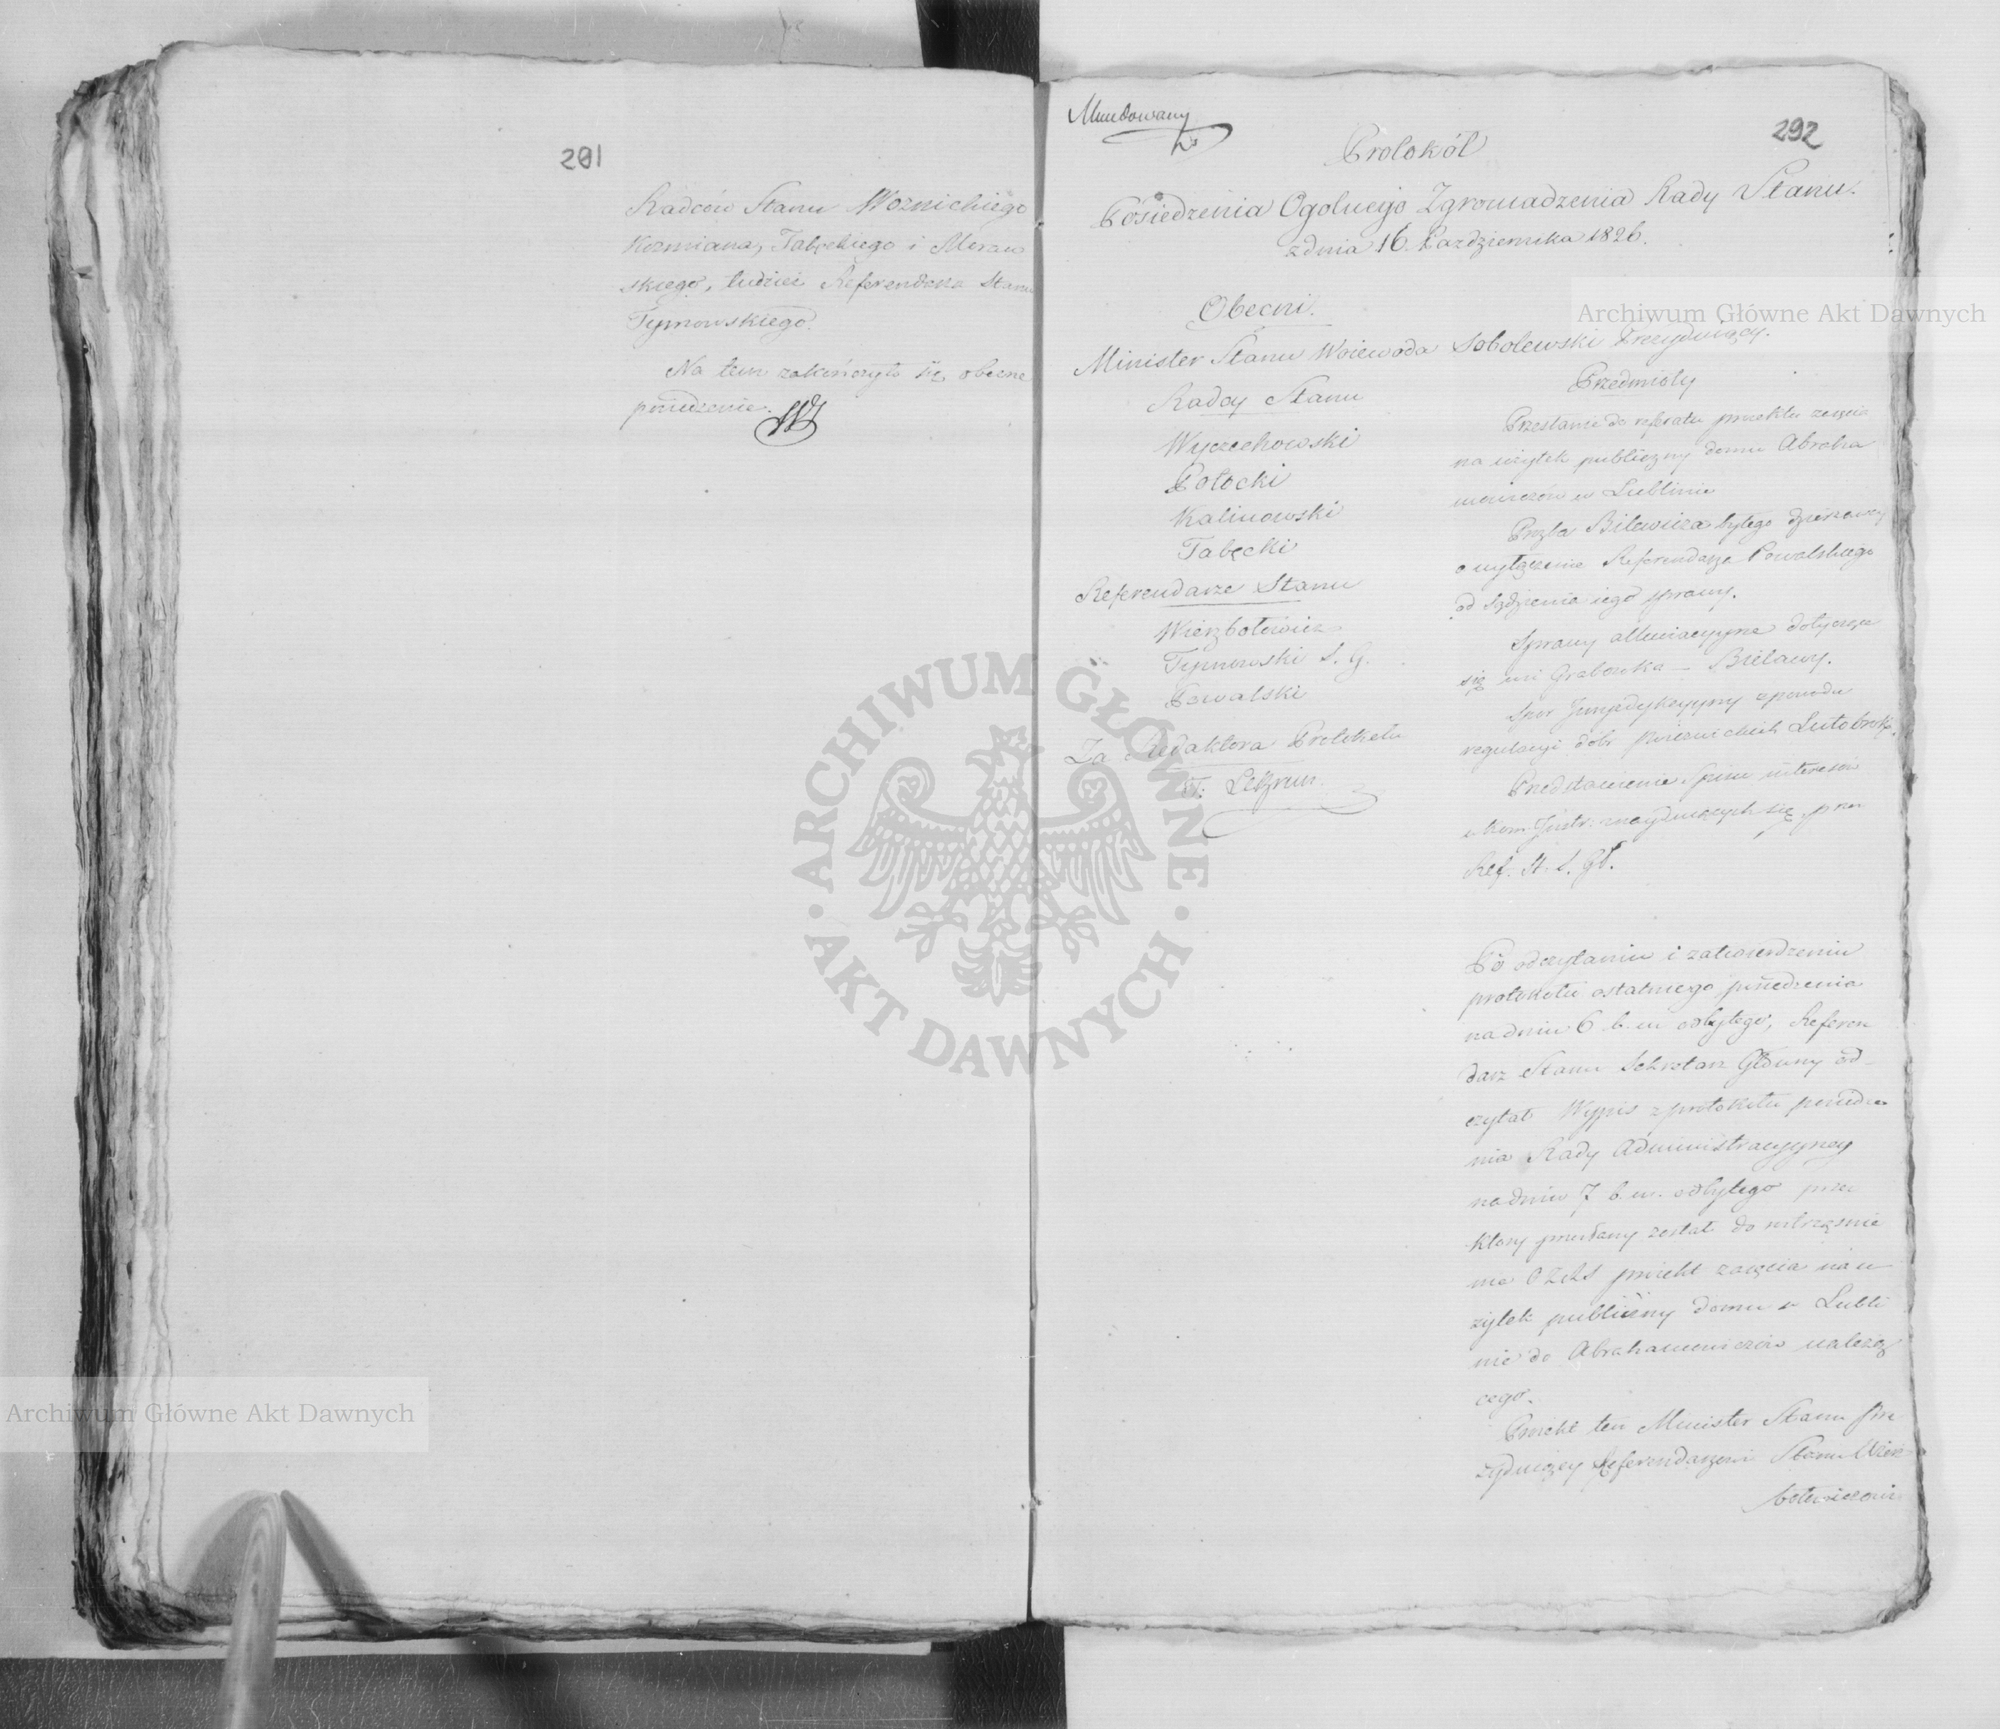 291
Radców Stanu Woznickiego
Kozmiana, Tabęckiego i Moraw
skiego, tudzież Referendarza Stanu
Tymowskiego.
Na tem zakończyło się obecne
posiedzenie.
Mundowany
292
Protokół
Posiedzenia Ogolnego Zgromadzenia Rady Stanu.
z dnia 16. Października 1826.
Obecni.
Minister Stanu Woiewoda Sobolewski Prezyduiący.
Radcy Stanu
Wyczechowski
Potocki
Kalinowski
Tabęcki
Referendarze Stanu
Wierzbołowicz
Tymowski S. G.
Powalski
Za Redaktora Protokołu
LeBrun.
Przedmioty
Przesłanie do referatu proiektu zaięcia
na użytek publiczny domu Abraha
mowiczów w Lublinie
Prozba Bilewicza byłego dzierżawcy
o wyłączenie Referendarza Powalskiego
od sądzenia iego sprawy.
Sprawy alluwiacyyne dotyczące
się wsi Grabowka – Bielawy.
Spor Juryzdykcyyny z powodu
regulacyi dobr Lutobrok.
Przedstawienie Spisu interesów
w Kom: Instr: znayduiących się przez
Ref. St. S. Gł.
Po odczytaniu i zatwierdzeniu
protokołu ostatniego posiedzenia
na dniu 6 b. m odbytego, Referen
darz Stanu Sekretarz Główny od-
czytał Wypis z protokołu posiedze
nia Rady Administracyyney
na dniu 7 b. m. odbytego przez
ktory przesłany został do roztrząśnie
nia proiekt zaięcia na u
żytek publiczny domu w Lubli
nie do Abrahamowiczów należą
cego.
Proiekt ten Minister Stanu Pre
zyduiący Referendarzowi Stanu Wierz
bołowiczowi
Archiwum Główne Akt Dawnych
Archiwum Główne Akt Dawnych
ARCHIWUM GŁÓWNE AKT DAWNYCH